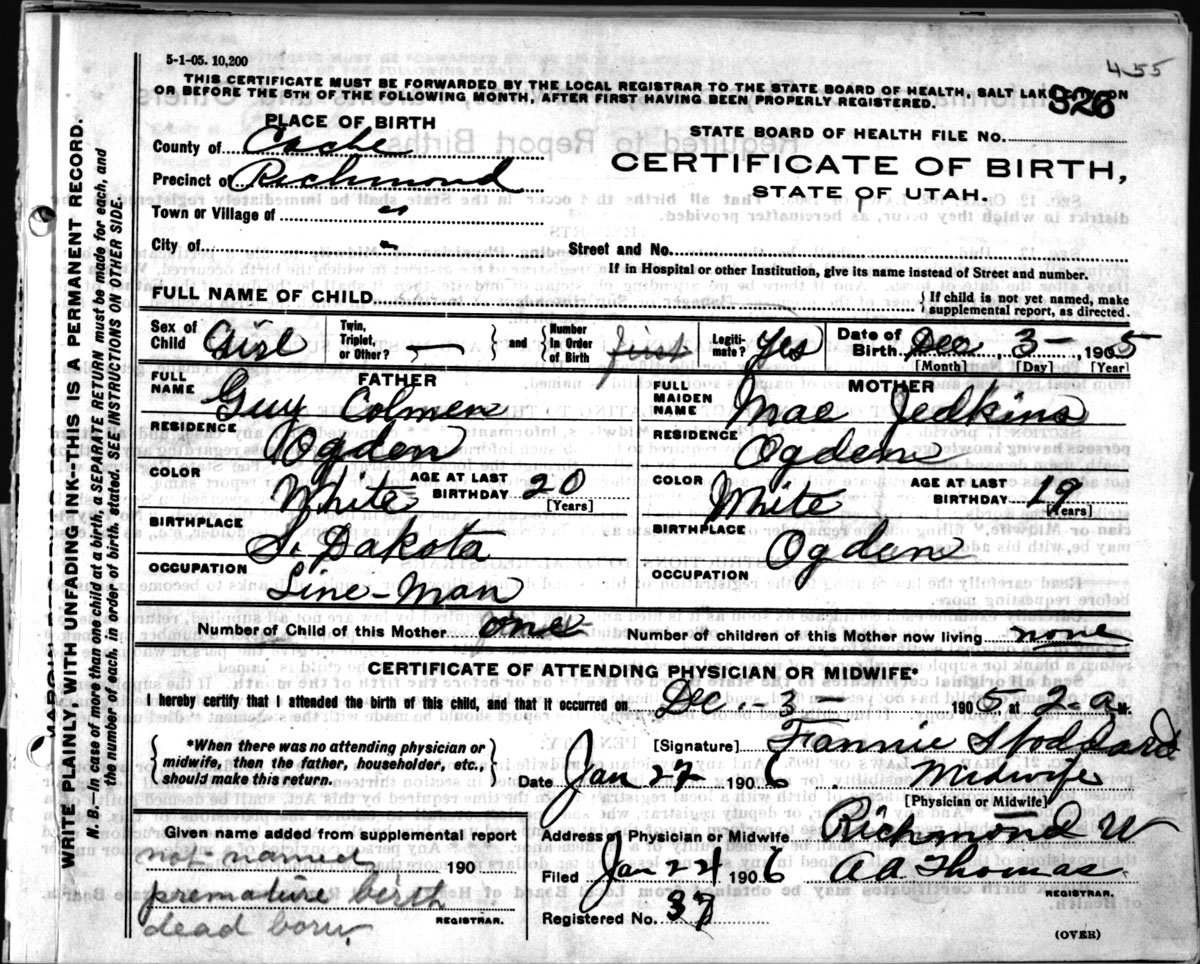 5-1-05. 10,200
455
THIS CERTIFICATE MUST BE FORWARDED BY THE LOCAL REGISTRAR TO THE STATE BOARD OF HEALTH, SALT LAKE CITY, ON
OR BEFORE THE 5TH OF THE FOLLOWING MONTH, AFTER FIRST HAVING BEEN PROPERLY REGISTERED.
326
PLACE OF BIRTH
STATE BOARD OF HEALTH FILE NO.
County of Cache
CERTIFICATE OF BIRTH,
Precinct of Richmond
STATE OF UTAH.
Town or Village of "
City of "
Street and No.
If in Hospital or other Institution, give its name instead of Street and number.
FULL NAME OF CHILD
{ If child is not yet named, make
supplemental report, as directed.
Sex of Child Girl
Twin, Triplet, or Other? — } and { Number In Order of Birth first
Legitimate? Yes
Date of Birth Dec 3 – , 1905
[Month] [Day] [Year]
FATHER
FULL NAME Guy Colmen
RESIDENCE Ogden
COLOR White AGE AT LAST BIRTHDAY 20
[Years]
BIRTHPLACE S. Dakota
OCCUPATION Line-Man
MOTHER
FULL MAIDEN NAME Mae Jedkins
RESIDENCE Ogden
COLOR White AGE AT LAST BIRTHDAY 19
[Years]
BIRTHPLACE Ogden
OCCUPATION
Number of Child of this Mother one Number of children of this Mother now living none
CERTIFICATE OF ATTENDING PHYSICIAN OR MIDWIFE*
I hereby certify that I attended the birth of this child, and that it occurred on Dec. - 3 – 1905 at 2 - a M.
{ *When there was no attending physician or
midwife, then the father, householder, etc.,
should make this return. }
[Signature] Fannie Stoddard
Date Jan 27 1906 Midwife
[Physician or Midwife]
Given name added from supplemental report
not named 190
premature birth
REGISTRAR.
dead born
Address of Physician or Midwife Richmond U
Filed Jan 24 1906 A A Thomas
REGISTRAR.
Registered No. 37
(OVER)
MARGIN RESERVED FOR BINDING
WRITE PLAINLY WITH UNFADING INK--THIS IS A PERMANENT RECORD.
N. B.—In case of more than one child at a birth, a SEPARATE RETURN must be made for each, and
the number of each, in order of birth, stated. SEE INSTRUCTIONS ON OTHER SIDE.